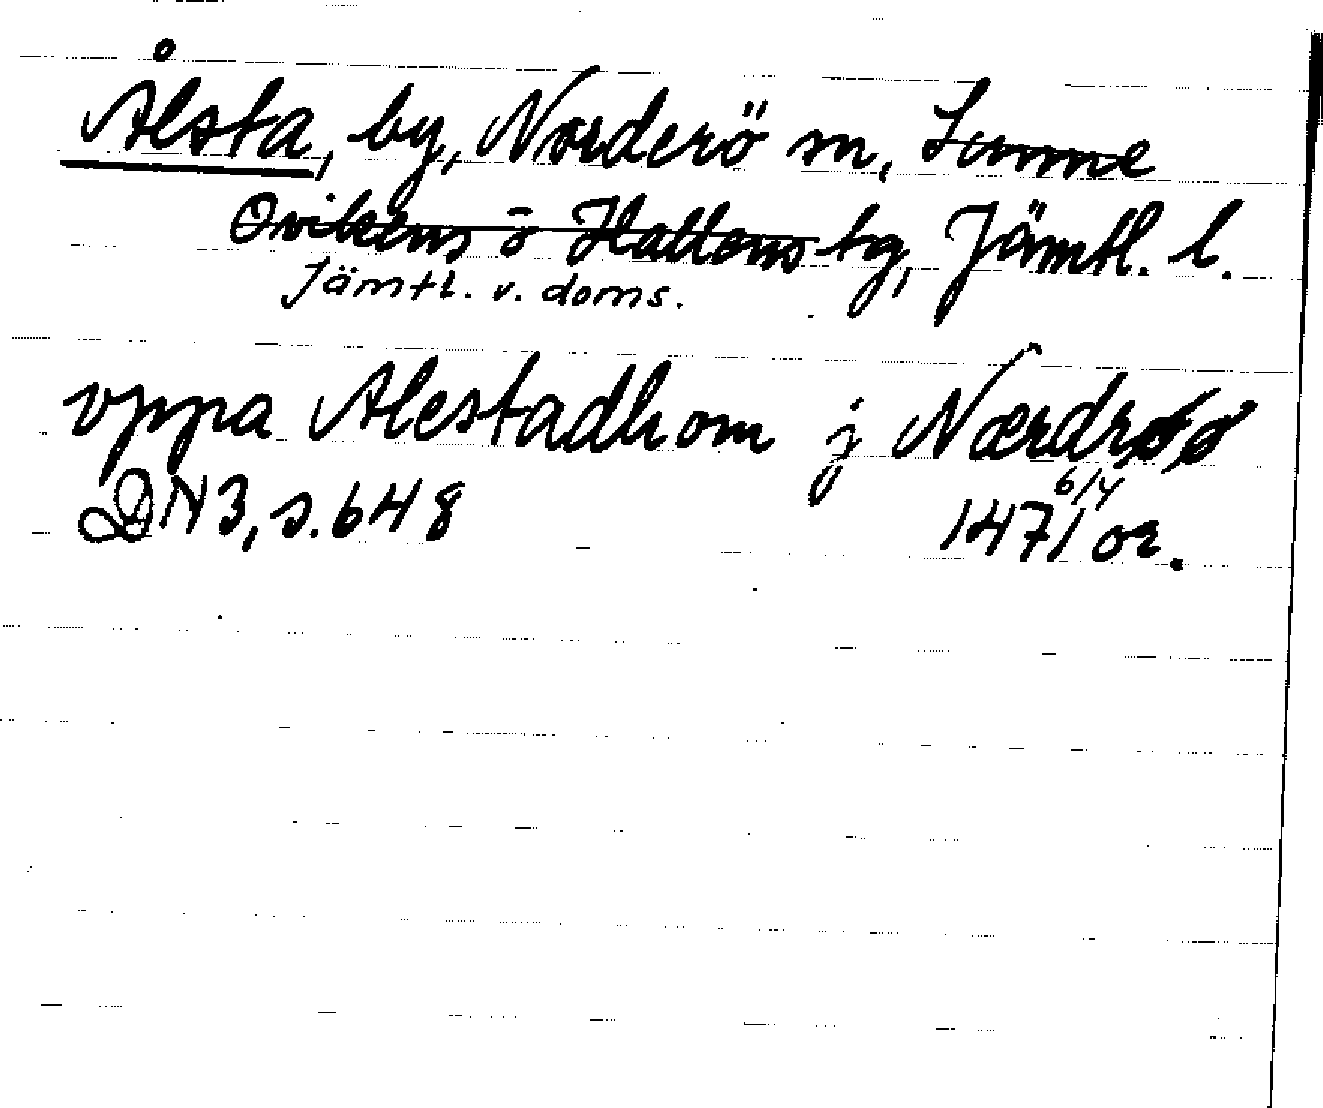 Ålsta, by, Norderö sn, Sunne
Ovikens o Hallens tg, Jämtl. l.
Jämtl. v. doms.
vppa Alestadhom j Nærdrøø
DN 3, s. 648 6/4 1471 or.